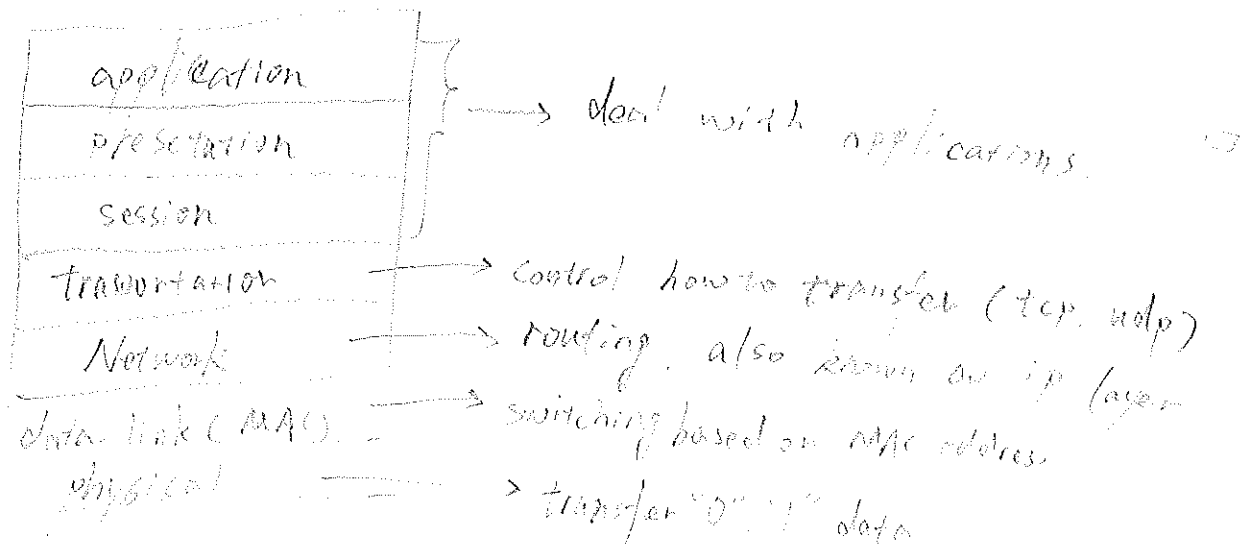 application
presctation
session
→ deal with applications.
trasportation → control how to transfer (tcp. udp)
Network → routing. also known as ip layer
data link (MAC) → switching based on MAC address.
physical → transfer "0" "1" data